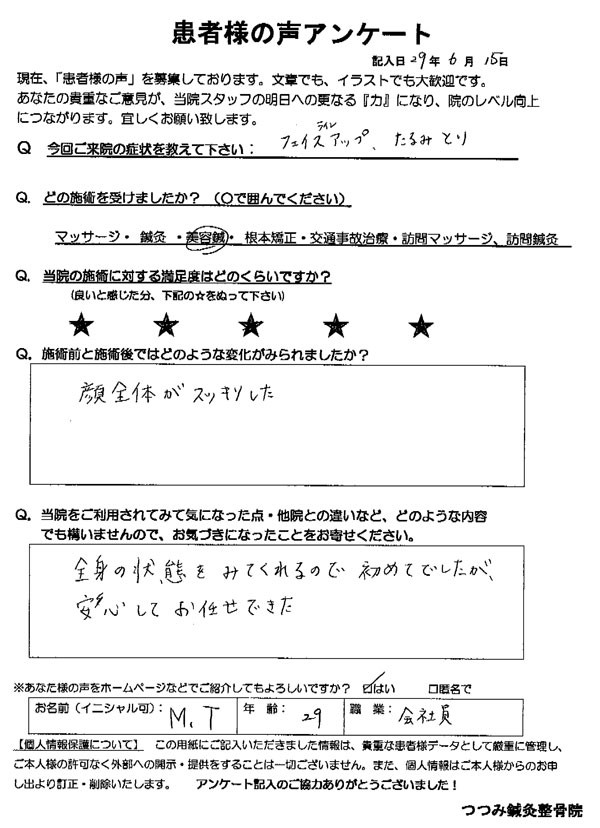 患者様の声アンケート
記入日 29年 6月 15日
現在、「患者様の声」を募集しております。文章でも、イラストでも大歓迎です。
あなたの貴重なご意見が、当院スタッフの明日への更なる『力』になり、院のレベル向上
につながります。宜しくお願い致します。
Q 今回ご来院の症状を教えて下さい： フェイスラインアップ、たるみとり
Q. どの施術を受けましたか？（〇で囲んでください）
マッサージ・ 鍼灸 ・美容鍼・ 根本矯正・交通事故治療・訪問マッサージ、訪問鍼灸
Q. 当院の施術に対する満足度はどのくらいですか？
（良いと感じた分、下記の☆をぬって下さい）
★ ★ ★ ★ ★
Q. 施術前と施術後ではどのような変化がみられましたか？
顔全体がスッキリした
Q. 当院をご利用されてみて気になった点・他院との違いなど、どのような内容
でも構いませんので、お気づきになったことをお寄せください。
全身の状態をみてくれるので初めてでしたが、
安心してお任せできた
※あなた様の声をホームページなどでご紹介してもよろしいですか？ ☑はい □匿名で
お名前（イニシャル可）： M.T 年 齢： 29 職 業： 会社員
【個人情報保護について】 この用紙にご記入いただきました情報は、貴重な患者様データとして厳重に管理し、
ご本人様の許可なく外部への開示・提供をすることは一切ございません。また、個人情報はご本人様からのお申
し出より訂正・削除いたします。 アンケート記入のご協力ありがとうございました！
つつみ鍼灸整骨院